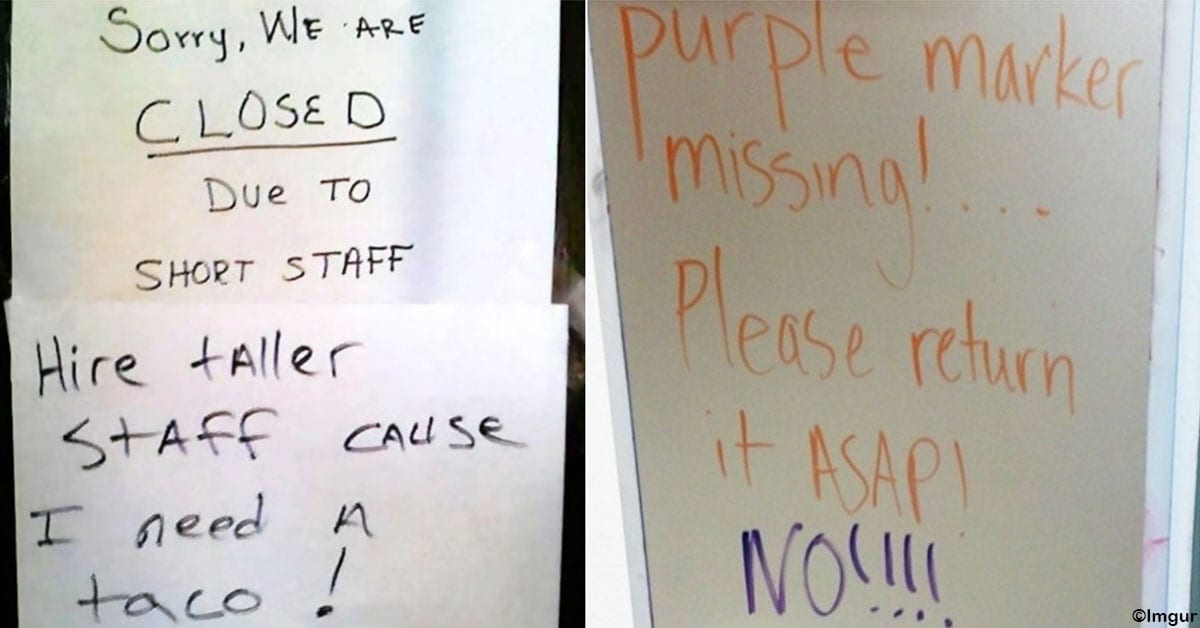 Sorry, WE ARE
CLOSED
DUE TO
SHORT STAFF
Hire tAller
StAff CAUSE
I need A
taco!
purple marker
missing!....
Please return
it ASAP!
NO!!!!
©Imgur